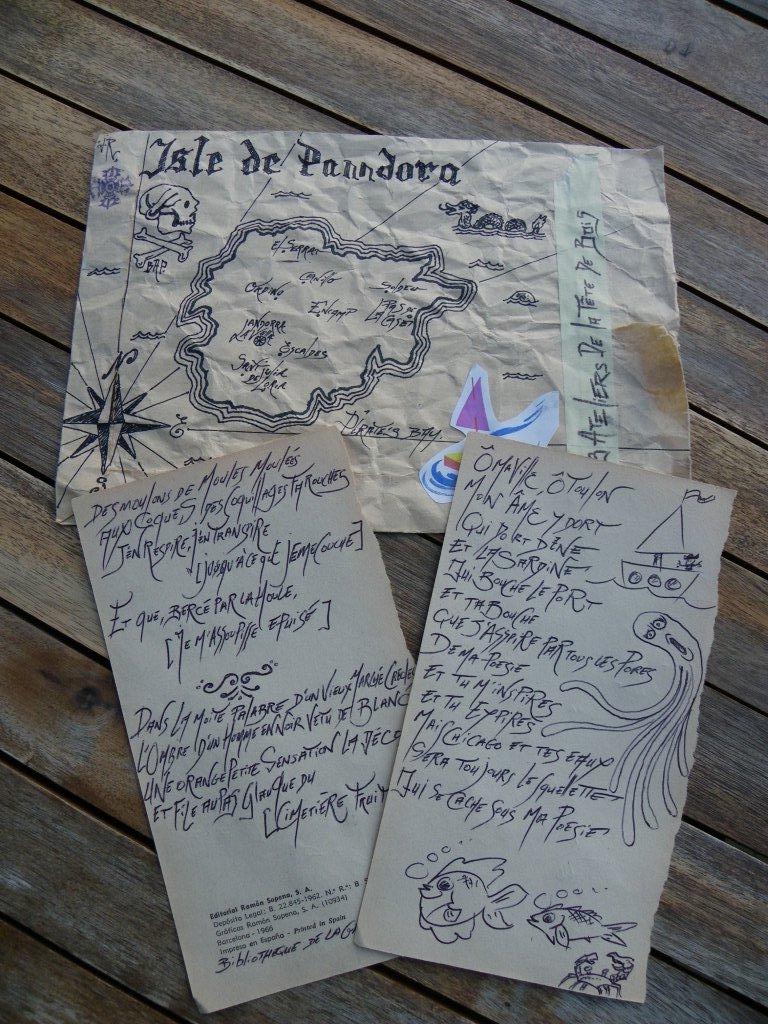 Isle de Panndora
BAP.
N
El Serrat
Canillo
Ordino
Soldeu
Encamp
Pas de
La Casa
Andorra
La Vella
Escaldes
Sant Julia
de
Loria
Pirate's Bay
Ateliers De la Tête De Bois
Des moulons de Moules Moulées
Aux Coques, des Coquillages Farouches
J'en Respire, J'en Transpire
[Jusqu'à ce que J'eme Couche]
Et que, Bercé par la Houle,
[Je m'assoupisse épuisé]
Dans la moite Palabre d'un Vieux Marché
L'Ombre d'un Homme en Noir Vetu de Blanc
Une Orange Petite Sensation la
Et File au Pas Glauque du
[Cimetière Fruit
Editorial Ramón Sopena, S. A.
Depósito Legal: B. 22.845-1962. N.º R.º: B. 5
Gráficas Ramón Sopena, S. A. (10934)
Barcelona - 1966
Impreso en España - Printed in Spain
Bibliothèque de la
Ô Ma Ville, Ô Toulon
Mon Âme y dort
Qui Dort Dîne
Et la Sardine
Qui Bouche le Port
Et ta Bouche
Que J'aspire par tous les Pores
De ma Poesie
Et tu m'inspires
Et tu Expires
Mais Chicago et tes eaux
Sera toujours le squelette
Qui se cache sous Ma Poesie